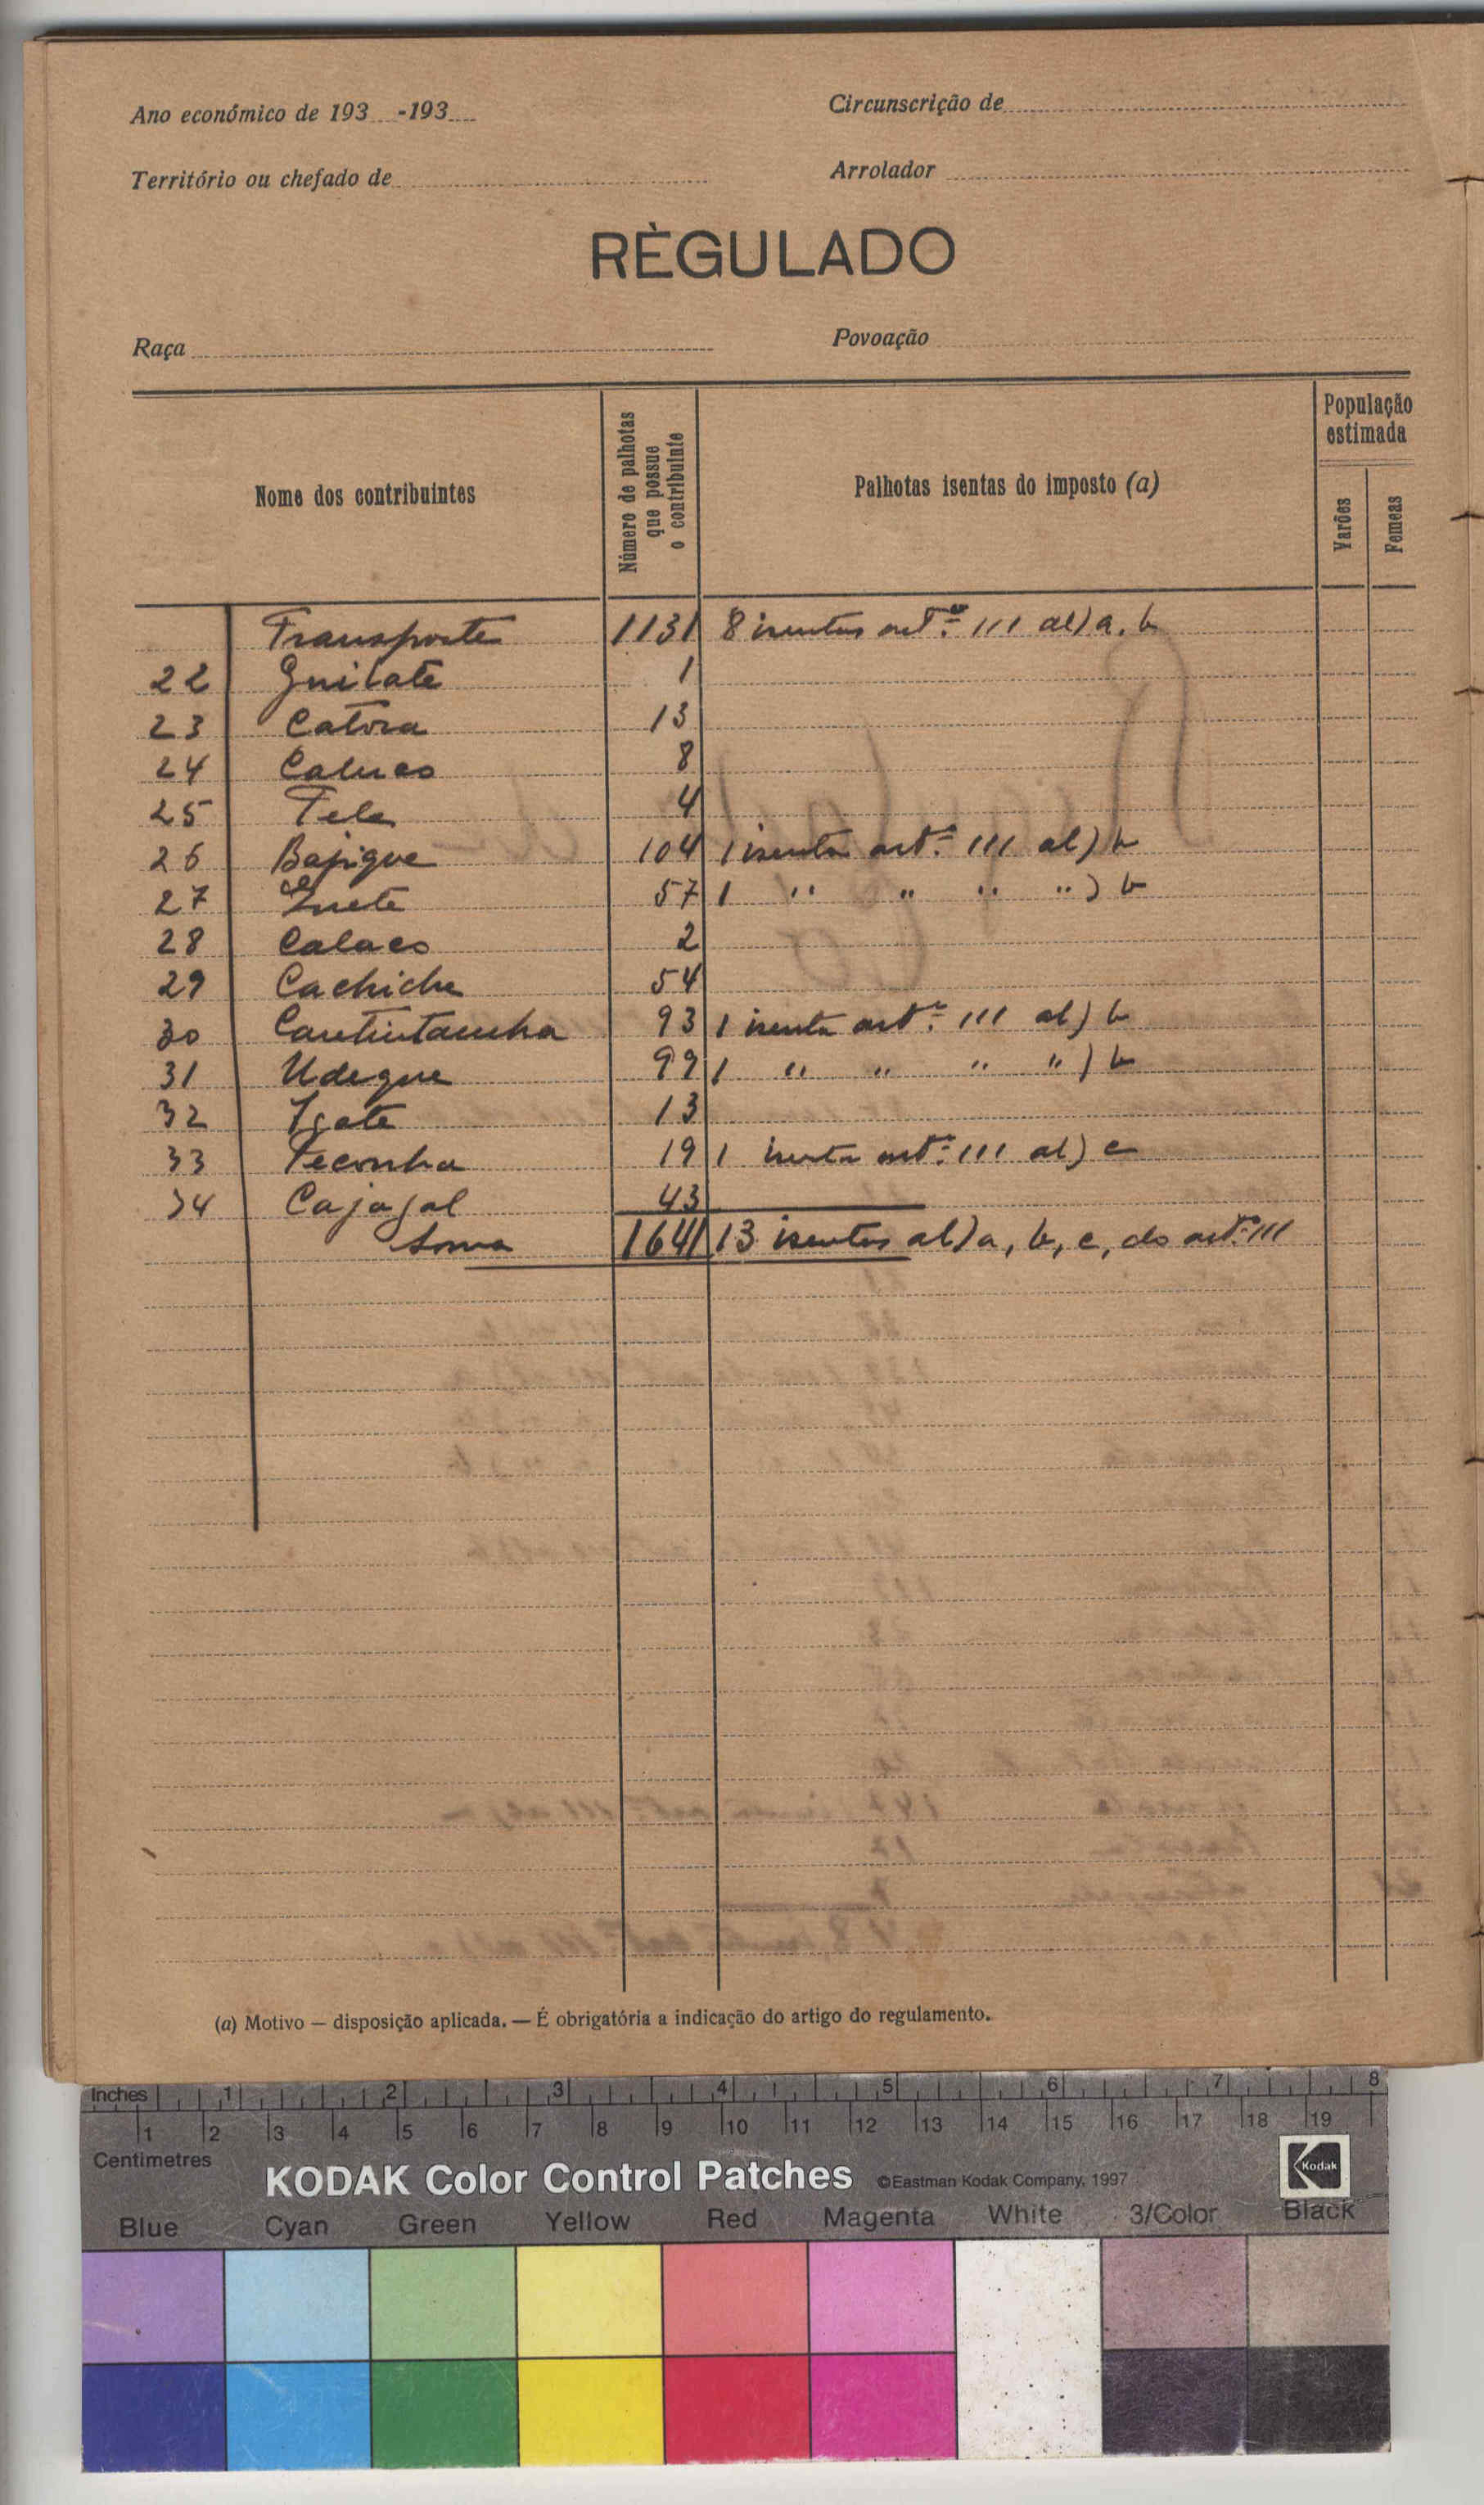 Ano económico de 193 -193
Circunscrição de
Território ou chefado de
Arrolador
RÈGULADO
Raça
Povoação
Nome dos contribuintes
Número de palhotas que possue o contribuinte
Palhotas isentas do imposto (a)
População estimada
Varões
Femeas
Transporte 1131 8 isentas artº 111 al) a, b
22 Guilate 1
23 Catora 13
24 Calueo 8
25 Tele 4
26 Bajigue 104 1 isenta artº 111 al) b
27 57 1 " " " ") b
28 Calaco 2
29 Cachiche 54
30 93 1 isenta artº 111 al) b
31 Udegue 99 1 " " " ") b
32 13
33 Peconha 19 1 isenta artº 111 al) c
34 43
Soma 1641 13 isentas al) a, b, c, do artº 111
(a) Motivo — disposição aplicada. — É obrigatória a indicação do artigo do regulamento.
Inches 1 2 3 4 5 6 7 8
1 2 3 4 5 6 7 8 9 10 11 12 13 14 15 16 17 18 19
Centimetres
KODAK Color Control Patches ©Eastman Kodak Company, 1997 Kodak
Blue Cyan Green Yellow Red Magenta White 3/Color Black